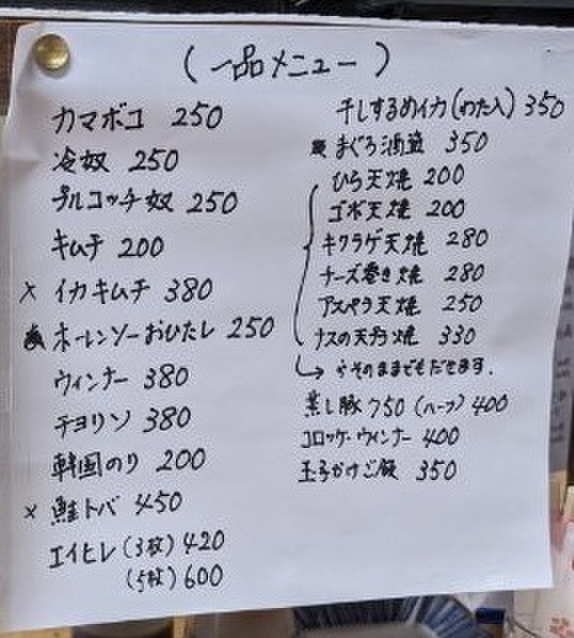 (一品メニュー)
カマボコ 250
冷奴 250
プルコッチ奴 250
キムチ 200
× イカキムチ 380
ホーレンソーおひたし 250
ウィンナー 380
チョリソ 380
韓国のり 200
× 鮭トバ 450
エイヒレ (3枚) 420
(5枚) 600
干しするめイカ(わた入) 350
まぐろ酒盗 350
ひら天焼 200
ゴボ天焼 200
キクラゲ天焼 280
チーズ巻き焼 280
アスパラ天焼 250
ナスの天 焼 330
→ そのままでもだせます.
蒸し豚 750 (ハーフ) 400
コロッケ・ウィンナー 400
玉子かけご飯 350